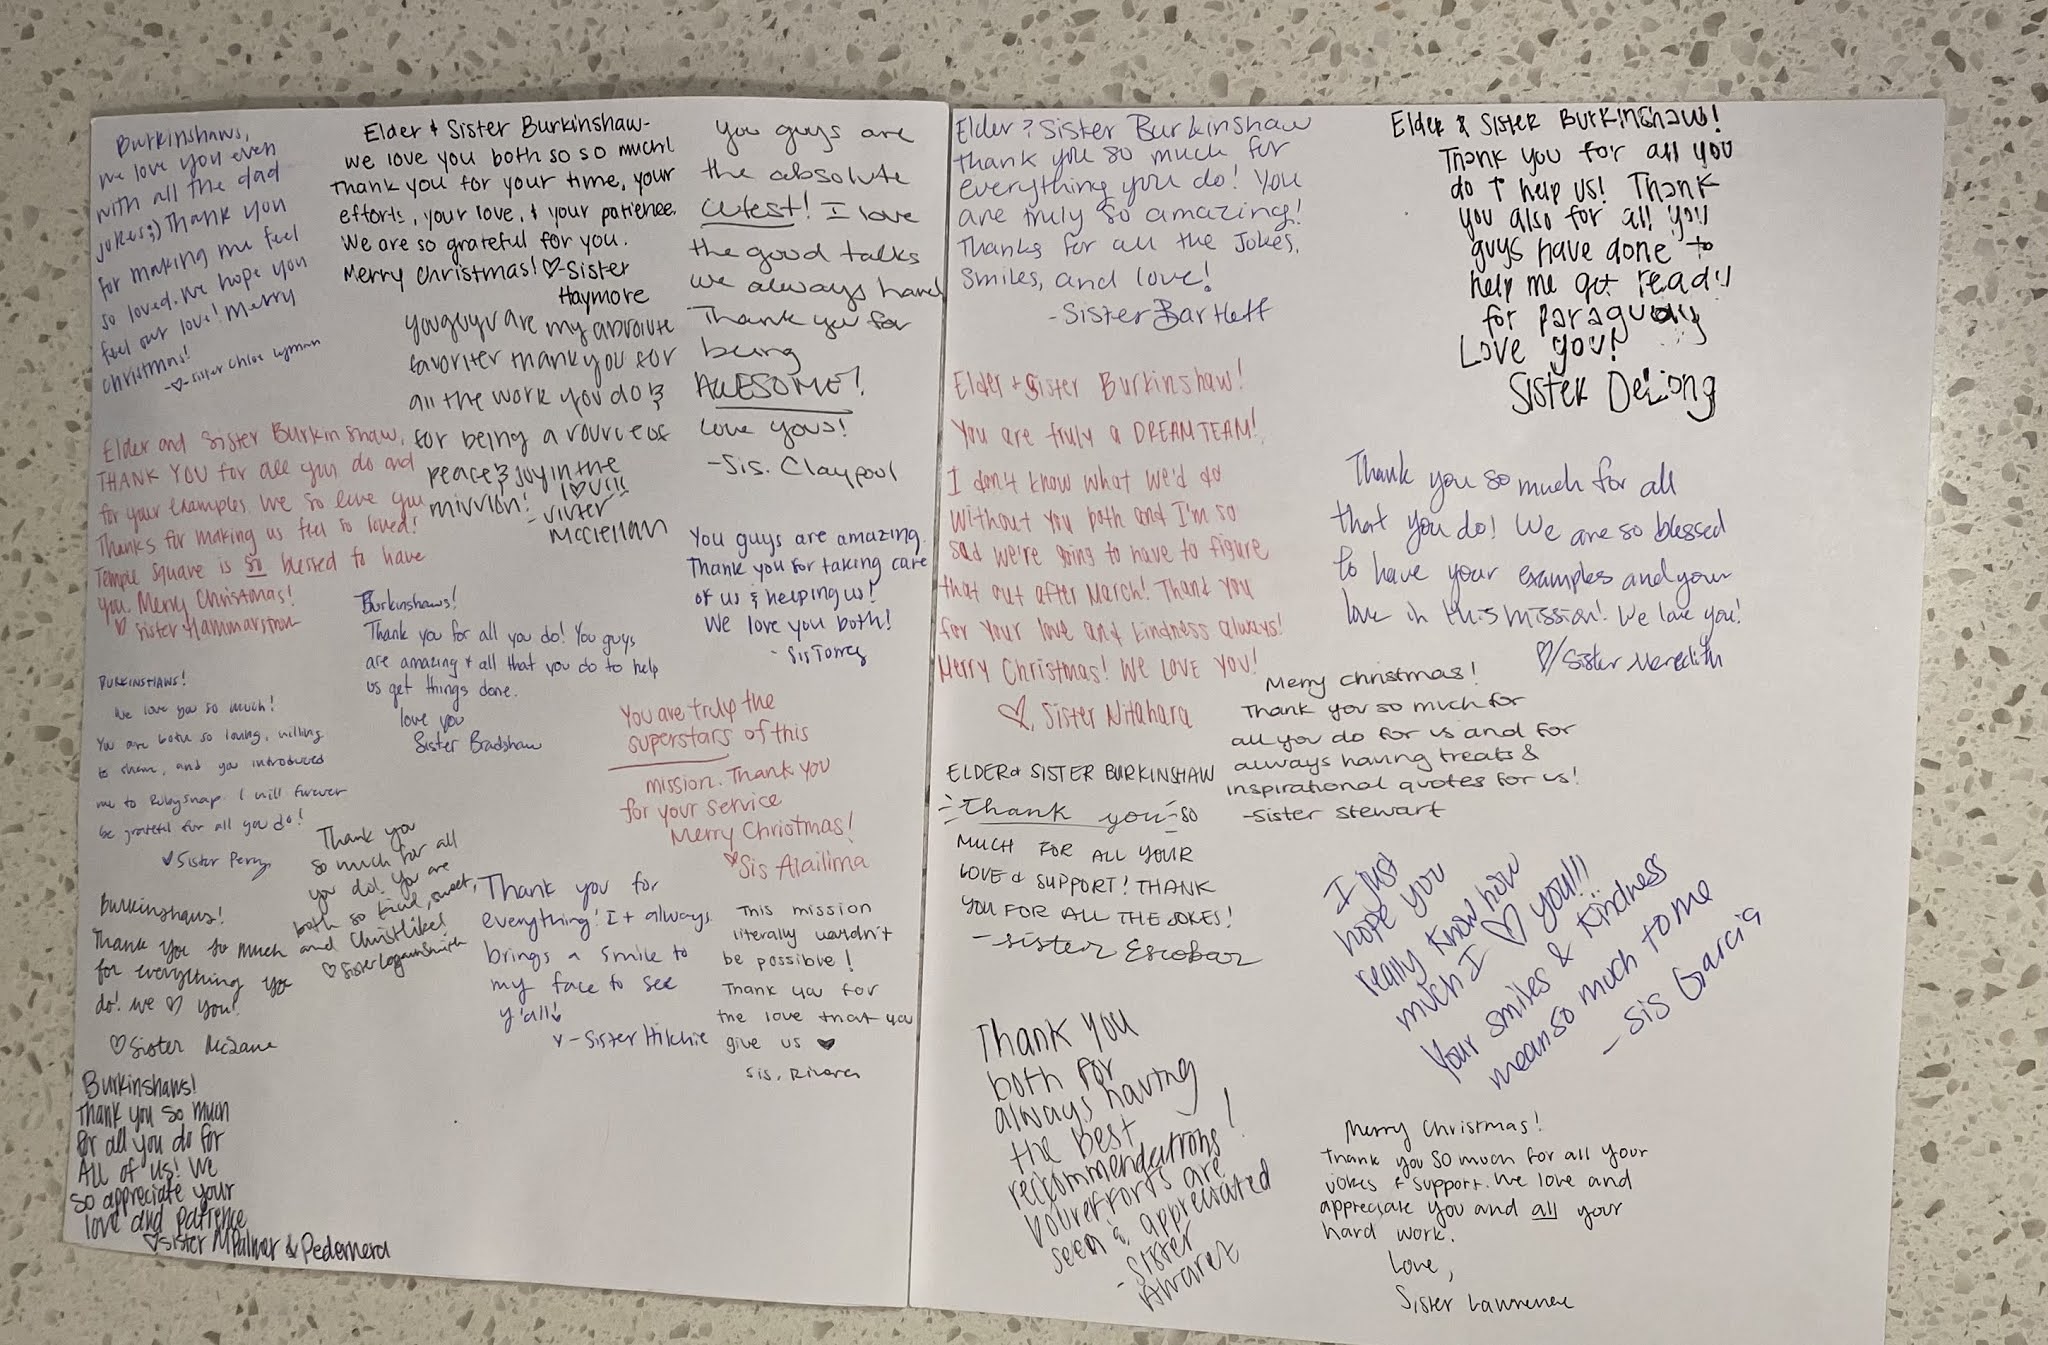 Burkinshaws,
we love you even
with all the dad
jokes ;) Thank you
for making me feel
so loved. We hope you
feel our love! Merry
christmas!
-♡-Sister Chloe Wyman
Elder & Sister Burkinshaw-
we love you both so so much!
Thank you for your time, your
efforts, your love, & your patience.
We are so grateful for you.
Merry Christmas! ♡-Sister
Haymore
you guys are my absolute
favorites thank you for
all the work you do &
for being a source of
peace & joy in the
mission!
I ♡ U!!!
- Sister
McClellan
You guys are
the absolute
cutest! I love
the good talks
we always have
Thank you for
being
AWESOME!
Love yous!
-Sis. Claypool
Elder and Sister Burkinshaw,
THANK YOU for all you do and
for your examples. We so love you
Thanks for making us feel so loved!
Temple Square is so blessed to have
you. Merry Christmas!
♡ Sister Hammarstrom
Burkinshaws!
Thank you for all you do! You guys
are amazing & all that you do to help
us get things done.
love you
Sister Bradshaw
You guys are amazing.
Thank you for taking care
of us & helping us!
We love you both!
- Sis Torres
BURKINSHAWS!
We love you so much!
You are both so loving, willing
to share, and you introduced
me to RubySnap. I will forever
be grateful for all you do!
♥ Sister Perry
You are truly the
superstars of this
mission. Thank you
for your service
Merry Christmas!
♡ Sis Alailima
Thank you
so much for all
you do! You are
both so kind, sweet,
and Christlike!
♡ Sister Logan Smith
Burkinshaws!
Thank you so much
for everything you
do! We ♡ you!
♡ Sister
Thank you for
everything! It always
brings a smile to
my face to see
y'all!
-Sister Hitchie
This mission
literally wouldn't
be possible!
Thank you for
the love that you
give us ♥
Sis. Rivera
Burkinshaws!
Thank you so much
for all you do for
All of us! We
so appreciate your
love and patience
♡ Sister M Palmer & Pedernera
Elder & Sister Burkinshaw
thank you so much for
everything you do! You
are truly so amazing!
Thanks for all the Jokes,
Smiles, and love!
-Sister Bartlett
Elder & Sister Burkinshaw!
Thank you for all you
do t help us! Thank
you also for all you
guys have done to
help me get ready
for paraguay
Love you!
Sister DeLong
Elder + Sister Burkinshaw!
You are truly a DREAM TEAM!
I don't know what we'd do
without you both and I'm so
sad we're going to have to figure
that out after March! Thank you
for your love and kindness always!
Merry Christmas! We LOVE YOU!
♡, Sister Nitahara
Thank you so much for all
that you do! We are so blessed
to have your examples and your
love in this mission! We love you!
♡/Sister Meredith
Merry Christmas!
Thank you so much for
all you do for us and for
always having treats &
inspirational quotes for us!
-Sister Stewart
ELDER & SISTER BURKINSHAW
Thank you so
MUCH FOR ALL YOUR
LOVE & SUPPORT! THANK
YOU FOR ALL THE JOKES!
-Sister Escobar
I just
hope you
really know how
much I ♡ you!!!
Your smiles & kindness
mean so much to me
- Sis Garcia
Thank you
both for
always having
the best
reckommendations!
Your efforts are
seen & appreciated
- Sister
Alvarez
Merry Christmas!
Thank you so much for all your
jokes & support. We love and
appreciate you and all your
hard work.
Love,
Sister Lawrence